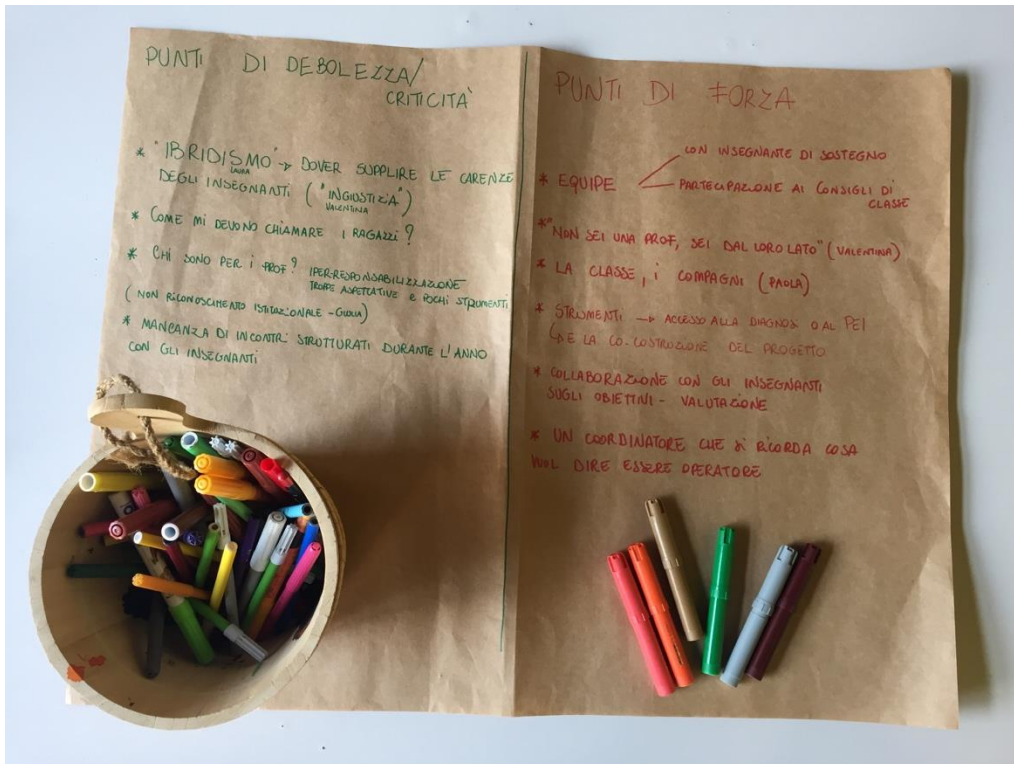 PUNTI DI DEBOLEZZA/
CRITICITÀ
* "IBRIDISMO" → DOVER SUPPLIRE LE CARENZE
LAURA
DEGLI INSEGNANTI ("INGIUSTIZIA")
VALENTINA
* COME MI DEVONO CHIAMARE I RAGAZZI?
* CHI SONO PER I PROF? IPER-RESPONSABILIZZAZIONE
TROPPE ASPETTATIVE E POCHI STRUMENTI
(NON RICONOSCIMENTO ISTITUZIONALE - GIULIA)
* MANCANZA DI INCONTRI STRUTTURATI DURANTE L'ANNO
CON GLI INSEGNANTI
PUNTI DI FORZA
CON INSEGNANTE DI SOSTEGNO
* EQUIPE
PARTECIPAZIONE AI CONSIGLI DI
CLASSE
* "NON SEI UNA PROF, SEI DAL LORO LATO" (VALENTINA)
* LA CLASSE, i COMPAGNI (PAOLA)
* STRUMENTI → ACCESSO ALLA DIAGNOSI O AL PEI
↳ E LA CO-COSTRUZIONE DEL PROGETTO
* COLLABORAZIONE CON GLI INSEGNANTI
SUGLI OBIETTIVI - VALUTAZIONE
* UN COORDINATORE CHE SI RICORDA COSA
VUOL DIRE ESSERE OPERATORE